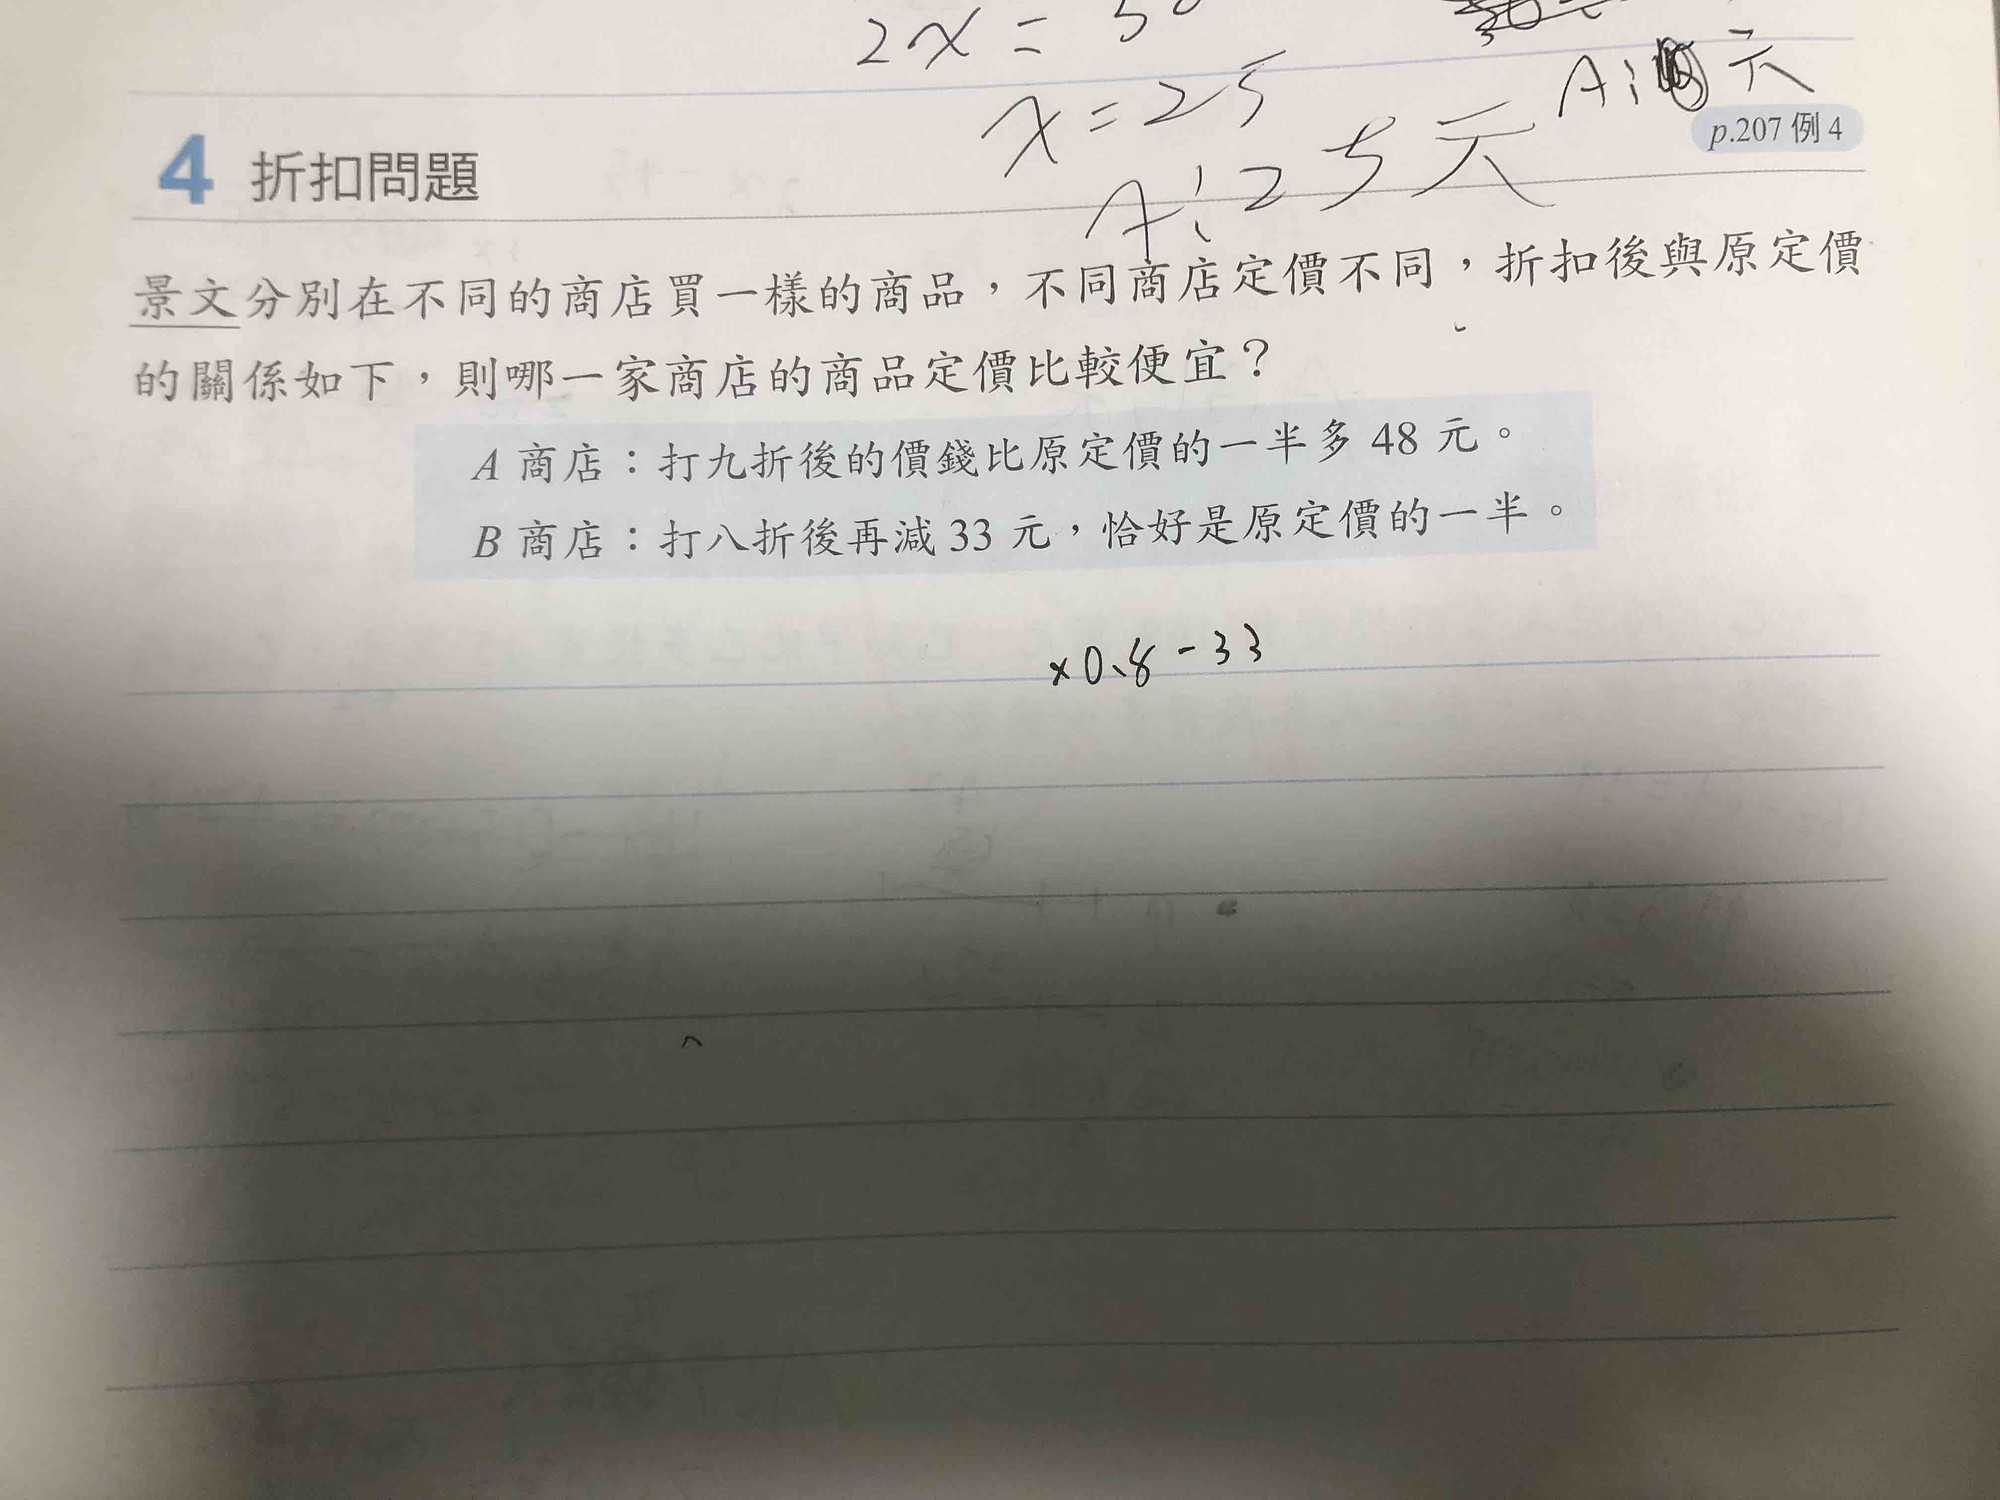 2x = 50
x = 25
A: 25元
A: 元
p.207 例 4
4 折扣問題
景文分別在不同的商店買一樣的商品，不同商店定價不同，折扣後與原定價
的關係如下，則哪一家商店的商品定價比較便宜？
A 商店：打九折後的價錢比原定價的一半多 48 元。
B 商店：打八折後再減 33 元，恰好是原定價的一半。
×0.8-33